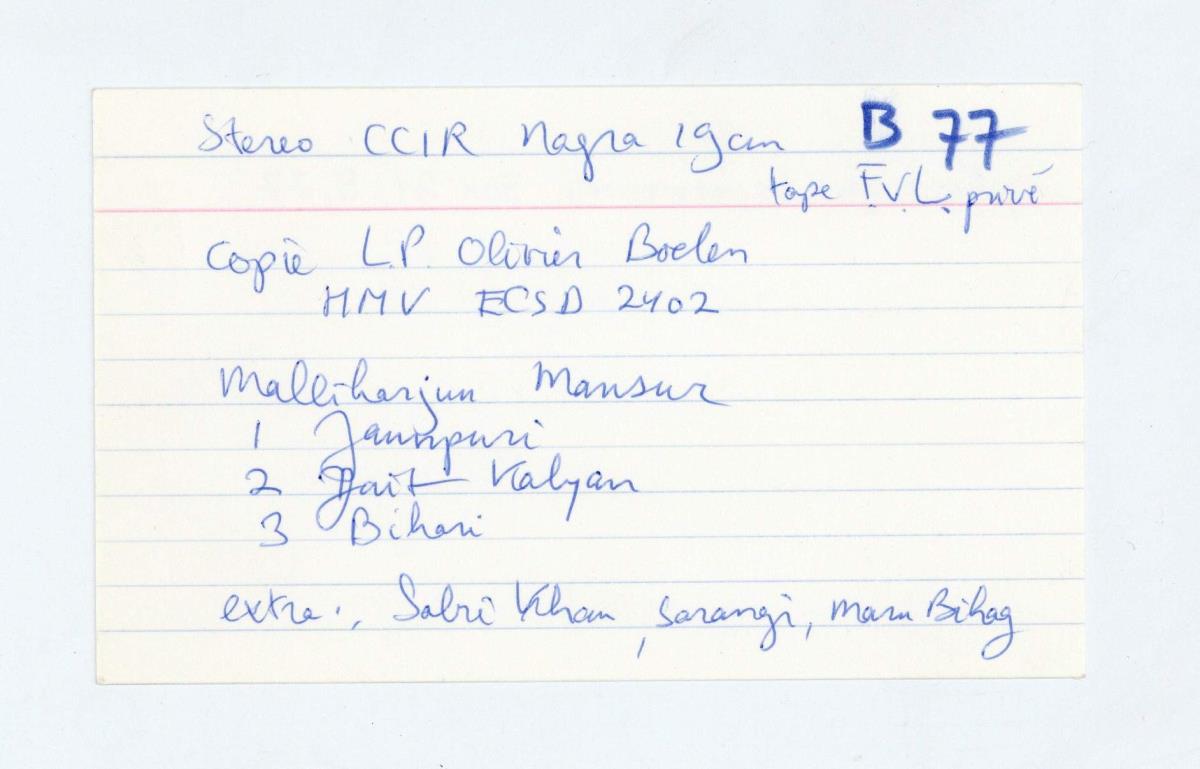 Stereo CCIR Nagra 19cm B 77
tape F.V.L. privé
Copie L.P. Olivier Boelen
HMV ECSD 2402
Mallikarjun Mansur
1 Jaunpuri
2 Jait Kalyan
3 Bihari
extra: Sabri Khan, sarangi, Maru Bihag